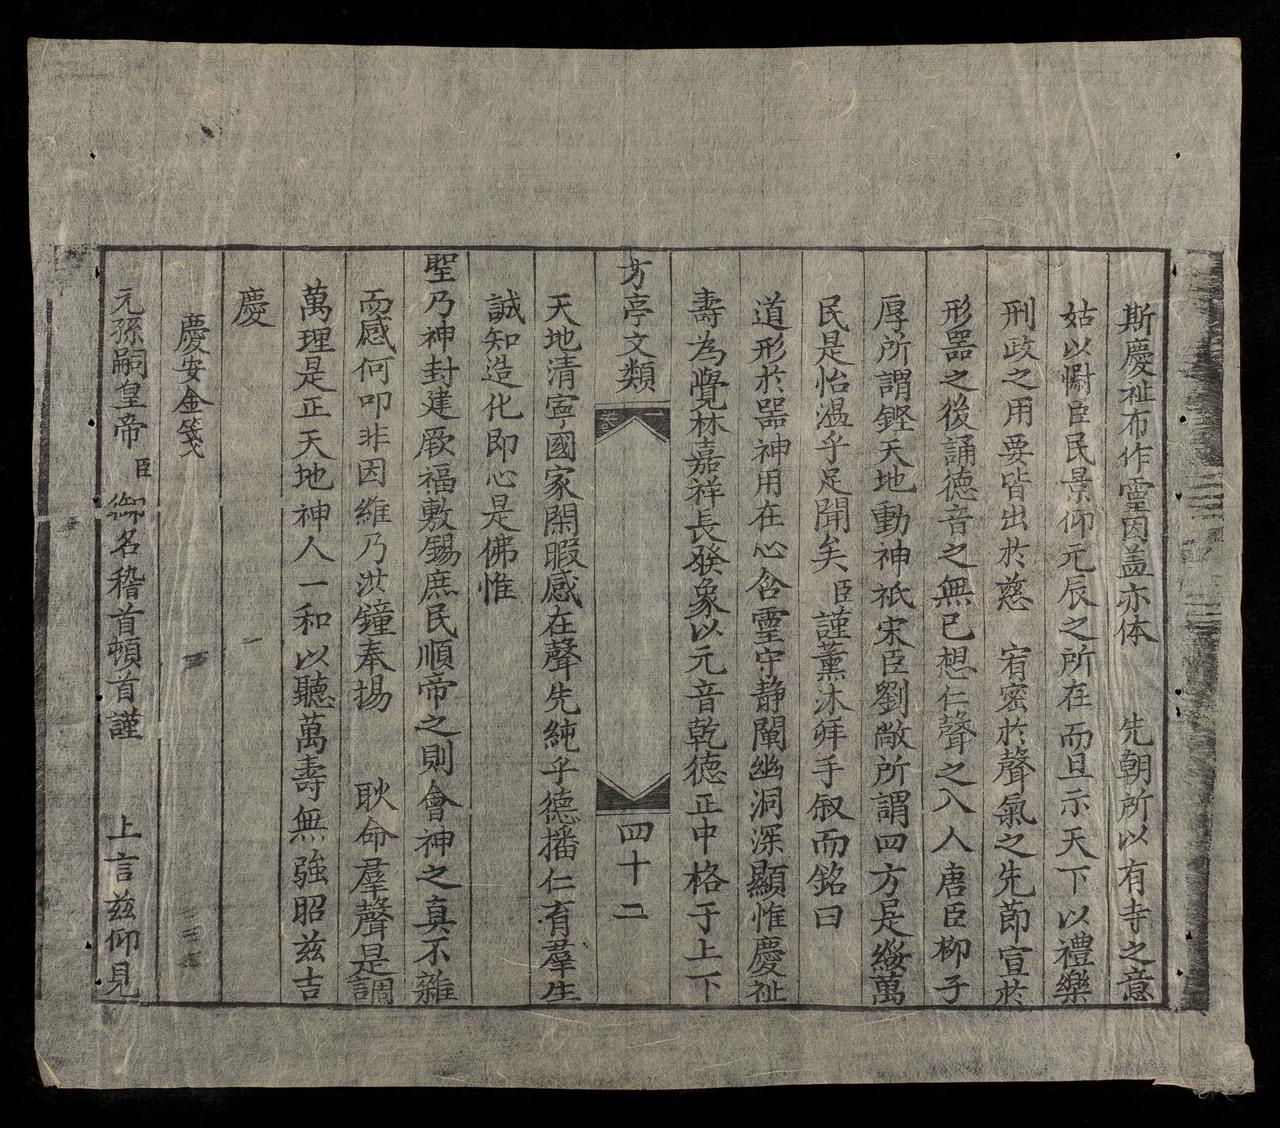 斯慶祉布作靈因盖亦体　先朝所以有寺之意
姑以慰臣民景仰元辰之所在而且示天下以禮樂
刑政之用要皆出於慈　宥密於聲氣之先節宣於
形器之後誦德音之無已想仁聲之入人唐臣柳子
厚所謂鏗天地動神祇宋臣劉敞所謂四方是綏萬
民是怡溫乎足開矣臣謹薰沐拜手叙而銘曰
道形於器神用在心含靈守静闡幽洞深顯惟慶祉
壽為覺林嘉祥長發象以元音乾德正中格于上下
方亭文類
卷一
四十二
天地清寧國家閑暇感在聲先純乎德播仁有羣生
誠知造化即心是佛惟
聖乃神封建厥福敷錫庶民順帝之則會神之真不雜
而感何叩非因維乃洪鐘奉揚　耿命羣聲是調
萬理是正天地神人一和以聽萬壽無強昭兹吉
慶
慶安金箋
元孫嗣皇帝臣御名稽首頓首謹　上言兹仰見